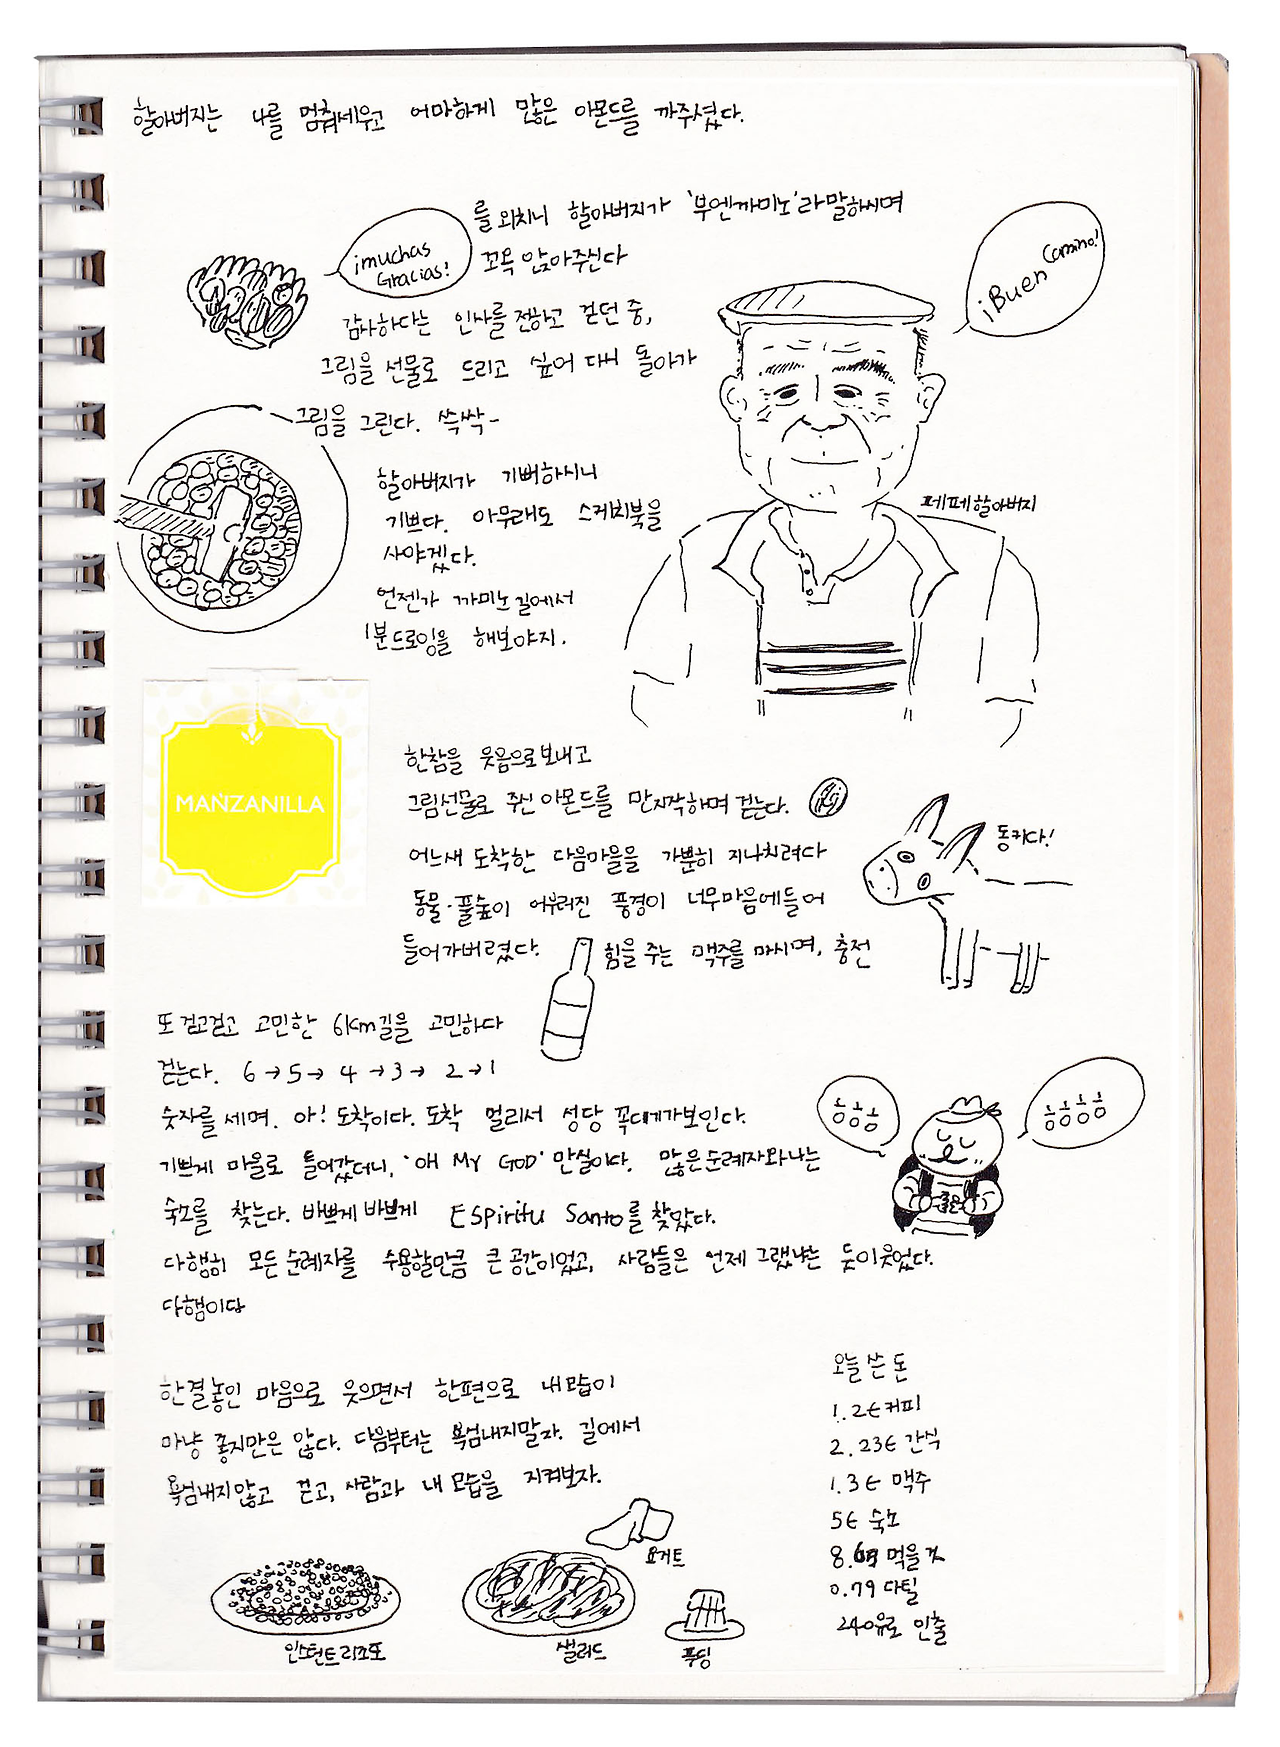 할아버지는 나를 멈춰세우고 어마하게 많은 아몬드를 까주셨다.
¡muchas
Gracias!
를 외치니 할아버지가 '부엔까미노'라 말하시며
꼬옥 안아주신다
¡Buen Camino!
감사하다는 인사를 전하고 걷던 중,
그림을 선물로 드리고 싶어 다시 돌아가
그림을 그린다. 쓱싹-
할아버지가 기뻐하시니
기쁘다. 아무래도 스케치북을
사야겠다.
언젠가 까미노길에서
1분드로잉을 해보야지.
페페할아버지
MANZANILLA
한참을 웃음으로보내고
그림선물로 주신 아몬드를 만지작하며 걷는다.
어느새 도착한 다음마을을 가뿐히 지나치려다
동물·풀숲이 어우러진 풍경이 너무마음에들어
들어가버렸다. 힘을 주는 맥주를 마시며, 충전
동키다!
또 걷고걷고 고민한 6km길을 고민하다
걷는다. 6→5→ 4 →3→ 2→1
숫자를 세며. 아! 도착이다. 도착 멀리서 성당 꼭대기가보인다.
기쁘게 마을로 들어갔더니, 'OH MY GOD' 만실이다. 많은순례자와나는
숙소를 찾는다. 바쁘게바쁘게 ESpiritu Santo를 찾았다.
다행히 모든순례자를 수용할만큼 큰 공간이었고, 사람들은 언제 그랬냐는 듯이웃었다.
다행이다
흐흐흐
흐흐흐흐
한결놓인 마음으로 웃으면서 한편으로 내모습이
마냥 좋지만은 않다. 다음부터는 욕심내지말자. 길에서
욕심내지않고 걷고, 사람과 내 모습을 지켜보자.
인스턴트리조또
샐러드
요거트
푸딩
오늘 쓴 돈
1.2€커피
2.23€ 간식
1.3€ 맥주
5€ 숙소
먹을것
0.79 다틸
240유로 인출